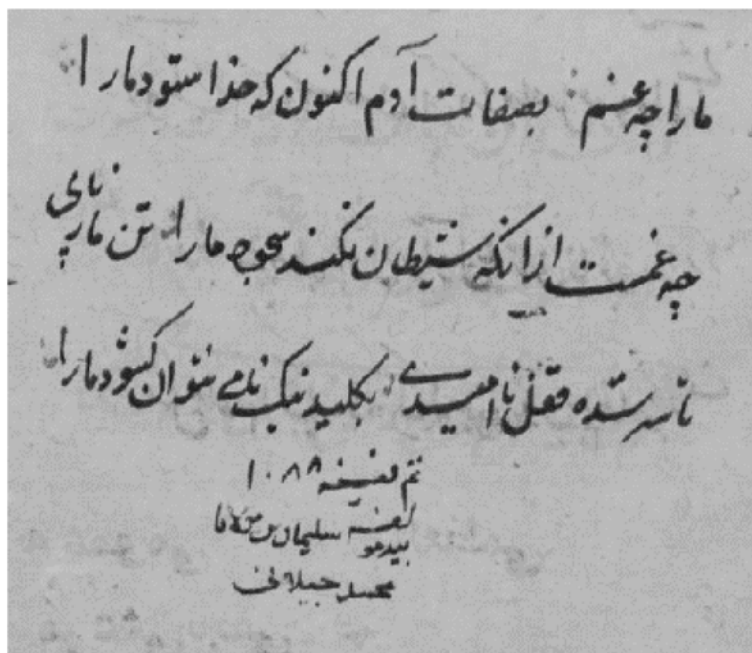 ما را چه غم بصفات آدم اکنون که خدا ستود ما را
چه غمست از انکه شیطان نکند سجود ما را تن ما ز پای
تا سر شده قفل نا امیدی بکلید نیک نامی نتوان کشود ما را
۱۰۸۸
سلیمان بن
محمد جیلانی